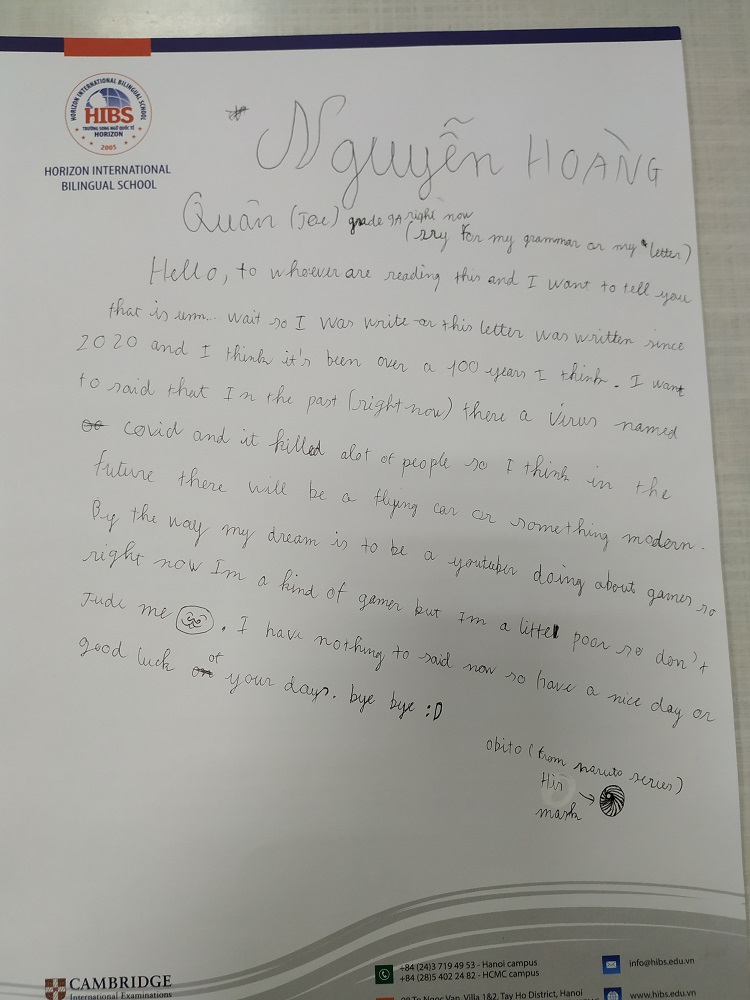 HORIZON INTERNATIONAL BILINGUAL SCHOOL
HIBS
TRƯỜNG SONG NGỮ QUỐC TẾ
HORIZON
2005
HORIZON INTERNATIONAL
BILINGUAL SCHOOL
* Nguyễn HOÀNG
Quân (Joe) grade 9A right now
(sry for my grammar or my letter)
Hello, to whoever are reading this and I want to tell you
that is umm... wait so I was write or this letter was written since
2020 and I think it's been over a 100 years I think. I want
to said that In the past (right now) there a virus named
covid and it killed alot of people so I think in the
future there will be a flying car or something modern.
By the way my dream is to be a youtuber doing about games so
right now Im a kind of gamer but Im a littel poor so don't
Jude me . I have nothing to said now so have a nice day or
good luck of your days. bye bye :D
obito (from naruto series)
His →
mark
CAMBRIDGE
International Examinations
+84 (24)3 719 49 53 - Hanoi campus
+84 (28)5 402 24 82 - HCMC campus
info@hibs.edu.vn
Van, Villa 1&2, Tay Ho District, Hanoi
www.hibs.edu.vn